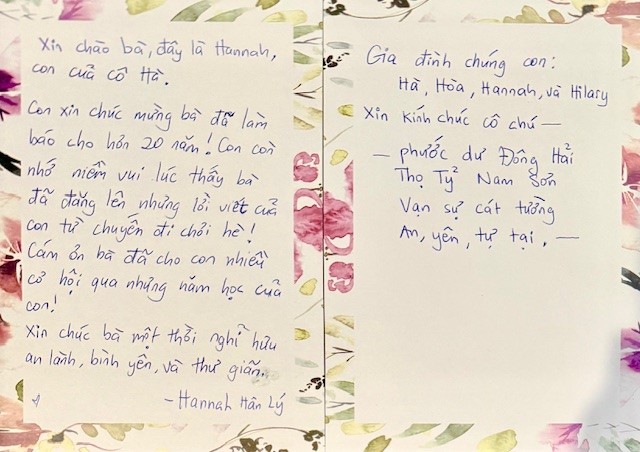 Xin chào bà, đây là Hannah,
con của cô Hà.
Con xin chúc mừng bà đã làm
báo cho hơn 20 năm! Con còn
nhớ niềm vui lúc thấy bà
đã đăng lên những lời viết của
con từ chuyến đi chơi hè!
Cám ơn bà đã cho con nhiều
cơ hội qua những năm học của
con!
Xin chúc bà một thời nghỉ hưu
an lành, bình yên, và thư giãn.
- Hannah Hân Lý
Gia đình chúng con:
Hà, Hòa, Hannah, và Hilary
Xin kính chúc cô chú —
— phước dư Đông Hải
Thọ Tỷ Nam Sơn
Vạn sự cát tường
An, yên, tự tại. —